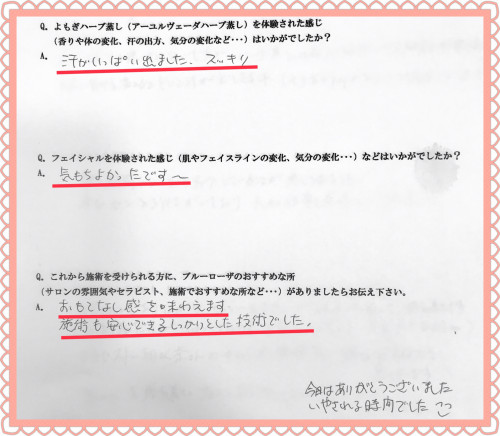 Q. よもぎハーブ蒸し（アーユルヴェーダハーブ蒸し）を体験された感じ
（香りや体の変化、汗の出方、気分の変化など･･･）はいかがでしたか？
A. 汗がいっぱい出ました。スッキリ
Q. フェイシャルを体験された感じ（肌やフェイスラインの変化、気分の変化･･･）などはいかがでしたか？
A. 気もちよかったです〜
Q. これから施術を受けられる方に、ブルーローザのおすすめな所
（サロンの雰囲気やセラピスト、施術でおすすめな所など･･･）がありましたらお伝え下さい。
A. おもてなし感を味わえます
施術も安心できるしっかりとした技術でした。
今日はありがとうございました
いやされる時間でした